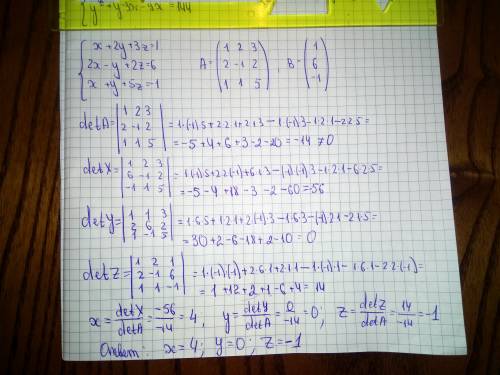 { y² + y - 3x - 9x = 144
{ x + 2y + 3z = 1
2x - y + 2z = 6
x + y + 5z = -1
A = ( 1 2 3
2 -1 2
1 1 5 ) , B = ( 1
6
-1 )
det A = | 1 2 3
2 -1 2
1 1 5 | = 1·(-1)·5 + 2·2·1 + 2·1·3 - 1·(-1)·3 - 1·2·1 - 2·2·5 =
= -5 + 4 + 6 + 3 - 2 - 20 = -14 ≠ 0
det X = | 1 2 3
6 -1 2
-1 1 5 | = 1·(-1)·5 + 2·2·(-1) + 6·1·3 - (-1)·(-1)·3 - 1·2·1 - 6·2·5 =
= -5 - 4 + 18 - 3 - 2 - 60 = -56
det Y = | 1 1 3
2 6 2
1 -1 5 | = 1·6·5 + 1·2·1 + 2·(-1)·3 - 1·6·3 - (-1)·2·1 - 2·1·5 =
= 30 + 2 - 6 - 18 + 2 - 10 = 0
det Z = | 1 2 1
2 -1 6
1 1 -1 | = 1·(-1)·(-1) + 2·6·1 + 2·1·1 - 1·(-1)·1 - 1·6·1 - 2·2·(-1) =
= 1 + 12 + 2 + 1 - 6 + 4 = 14
x = detX/detA = -56/-14 = 4, y = detY/detA = 0/-14 = 0; z = detZ/detA = 14/-14 = -1
Ответ: x = 4; y = 0; z = -1